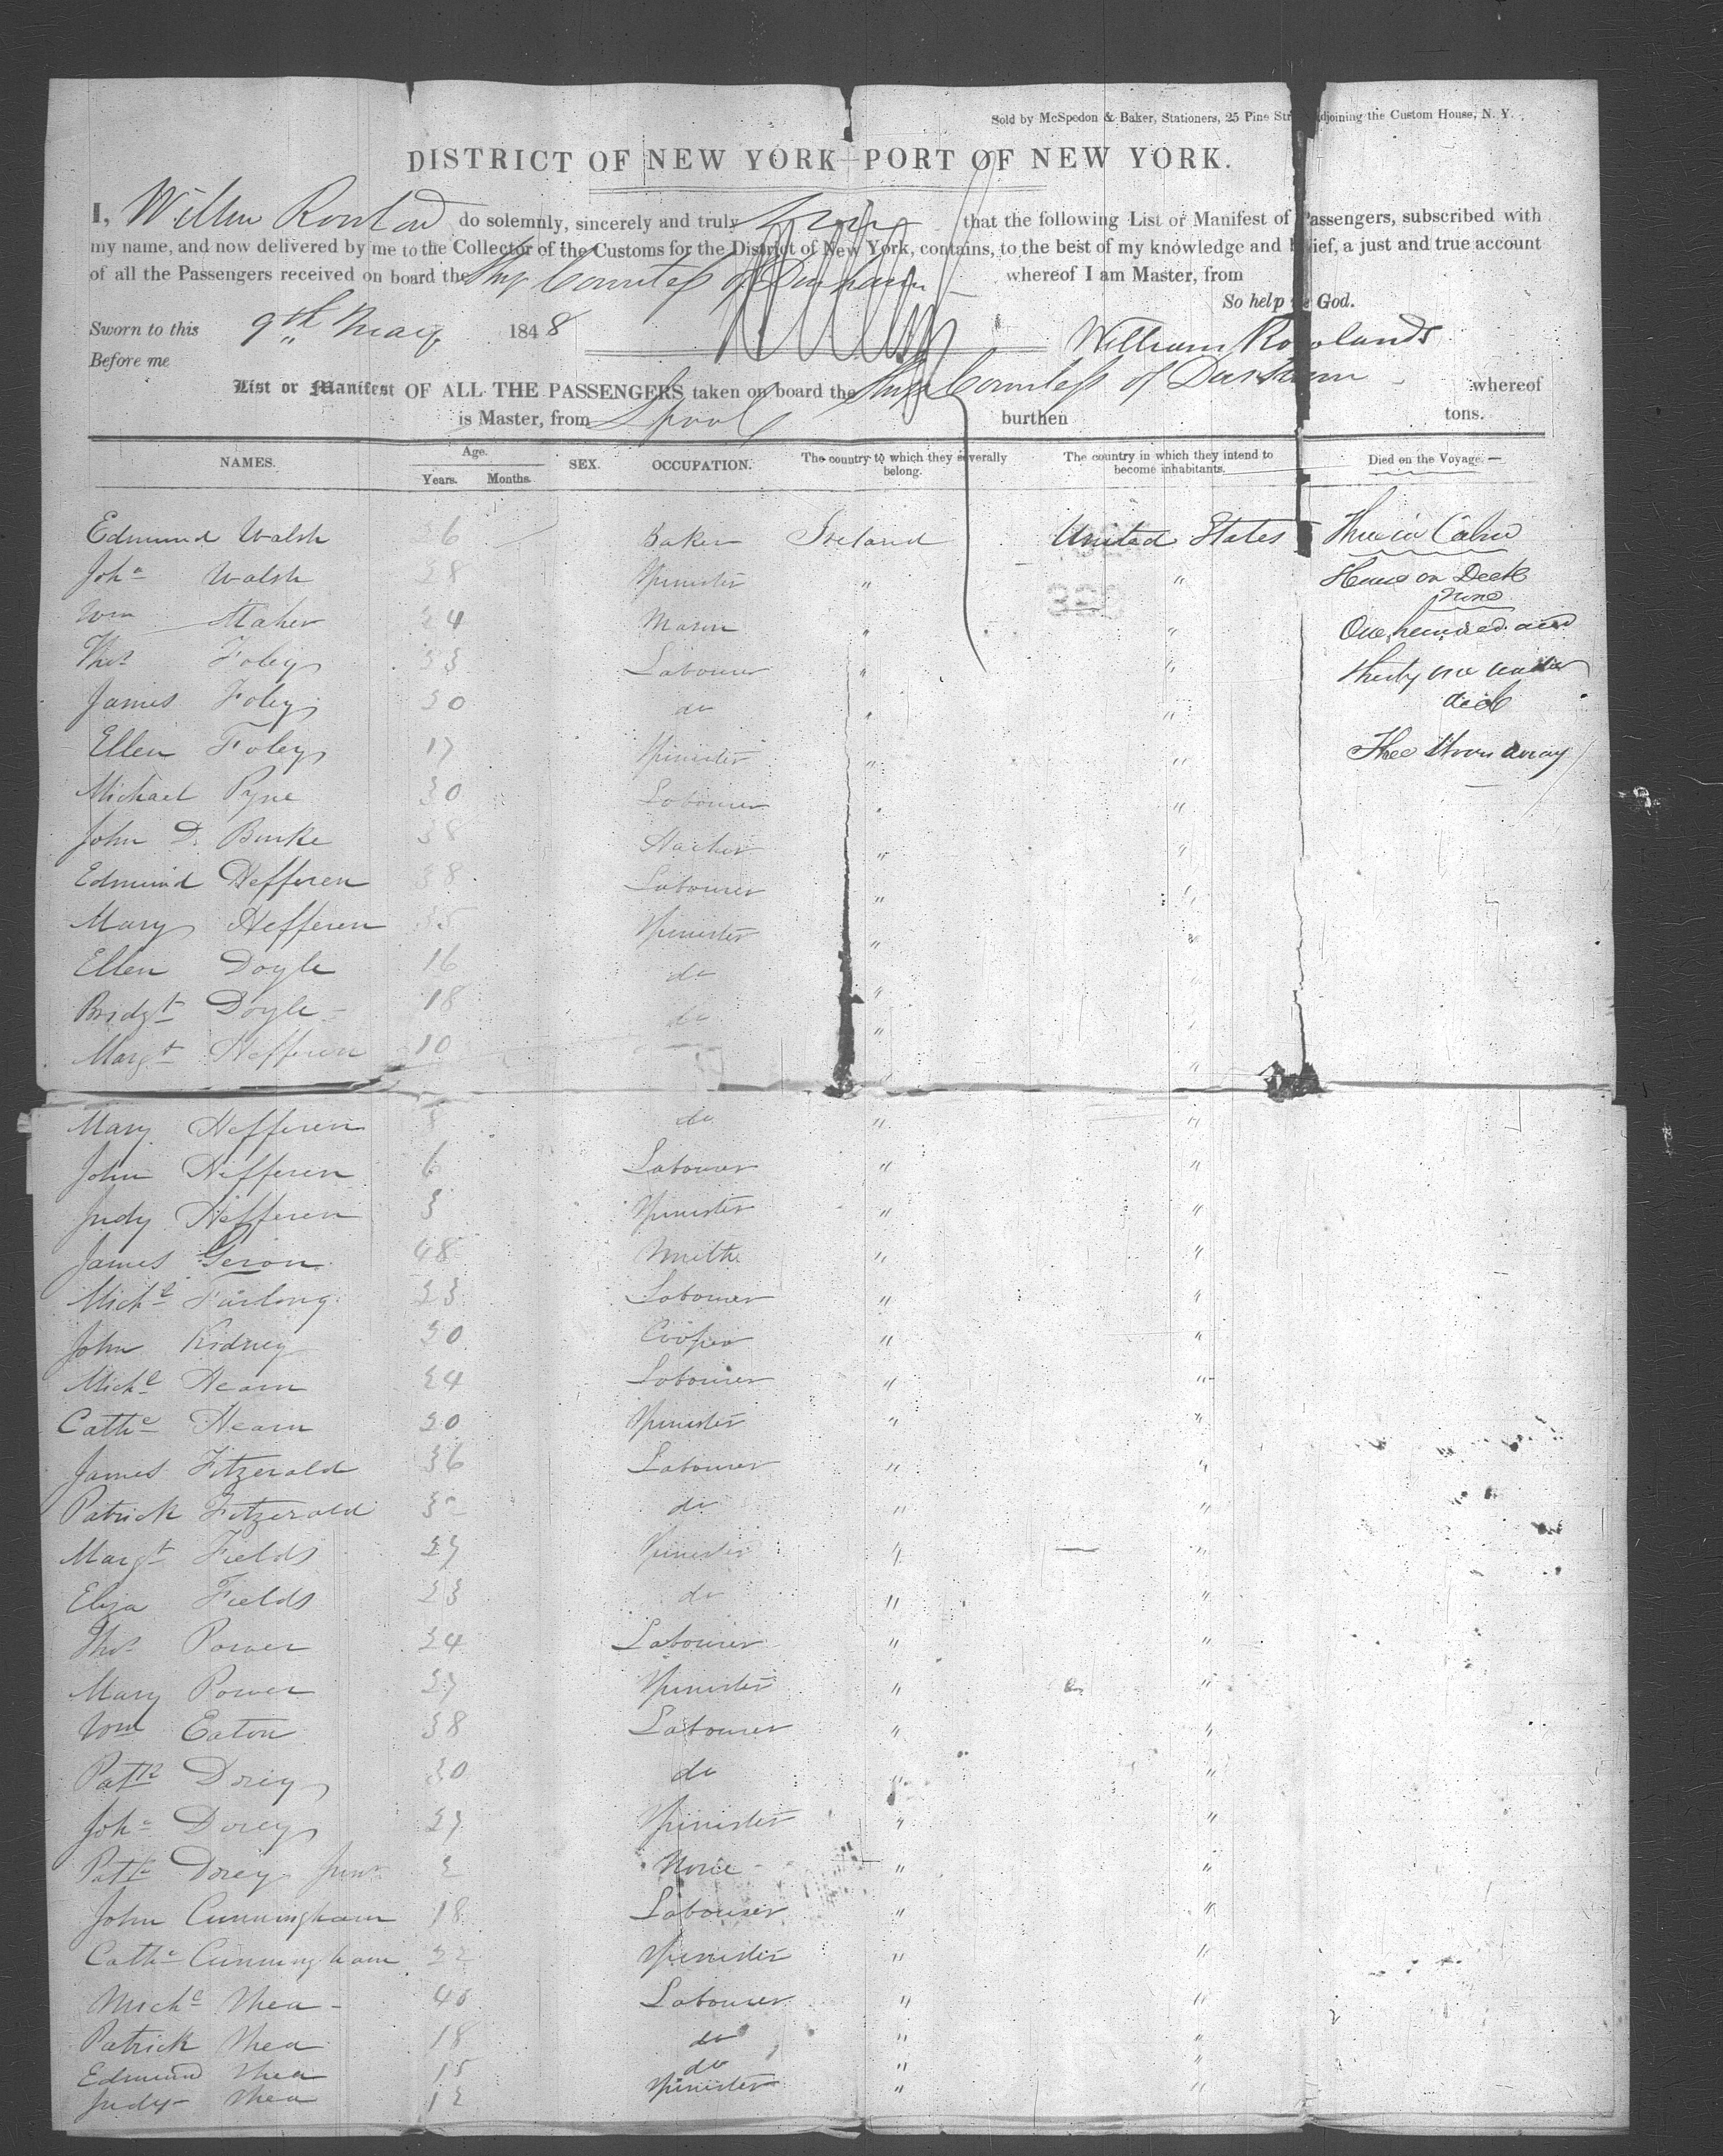 Sold by McSpedon & Baker, Stationers, 25 Pine Str adjoining the Custom House, N. Y.
DISTRICT OF NEW YORK—PORT OF NEW YORK.
I, Willm Rowland do solemnly, sincerely and truly that the following List or Manifest of Passengers, subscribed with
my name, and now delivered by me to the Collector of the Customs for the District of New York, contains, to the best of my knowledge and belief, a just and true account
of all the Passengers received on board the Ship Countess of Durham whereof I am Master, from
So help me God.
Sworn to this 9th May 1848
William Rowlands
Before me
List or Manifest OF ALL THE PASSENGERS taken on board the Ship Countess of Durham whereof
is Master, from Lpool burthen tons.
NAMES. Age. Years. Months. SEX. OCCUPATION. The country to which they severally belong. The country in which they intend to become inhabitants. Died on the Voyage.
Edmund Walsh 26 Baker Ireland United States Three in Cabin
Joha Walsh 28 Spinister " " House on Deck
none
Wm Maher 24 Mason " " One hundred and
Thos Foley 33 Labourer " " thirty one under
James Foley 30 do " " deck
Ellen Foley 17 Spinister " " Three Stow away
Michael Pyne 30 Labourer " "
John D. Burke 38 " "
Edmund Hefferen 38 Labourer " "
Mary Hefferen 35 Spinister " "
Ellen Doyle 16 do " "
Bridgt Doyle 18 do " "
Margt Hefferen 10 " "
Mary Hefferen do " "
John Hefferen 6 Labourer " "
Judy Hefferen 3 Spinister " "
James Geron 48 Smith " "
Michl Furlong 23 Labourer " "
John Kidney 30 Cooper " "
Michl Hearn 24 Labourer " "
Cathe Hearn 20 Spinister " "
James Fitzerald 36 Labourer " "
Patrick Fitzerald do " "
Margt Fields 27 Spinister " "
Eliza Fields 23 do " "
Thos Power 24 Labourer " "
Mary Power 27 Spinister " "
Wm Eaton 38 Labourer " "
Patk Dorey 30 do " "
Joha Dorey 27 Spinister " "
Patk Dorey Junr 2 None " "
John Cunningham 18 Labourer " "
Cathe Cunningham 22 Spinister " "
Michl Shea 40 Labourer " "
Patrick Shea 18 do " "
Edmund Shea 15 do " "
Judy Shea 12 Spinister " "